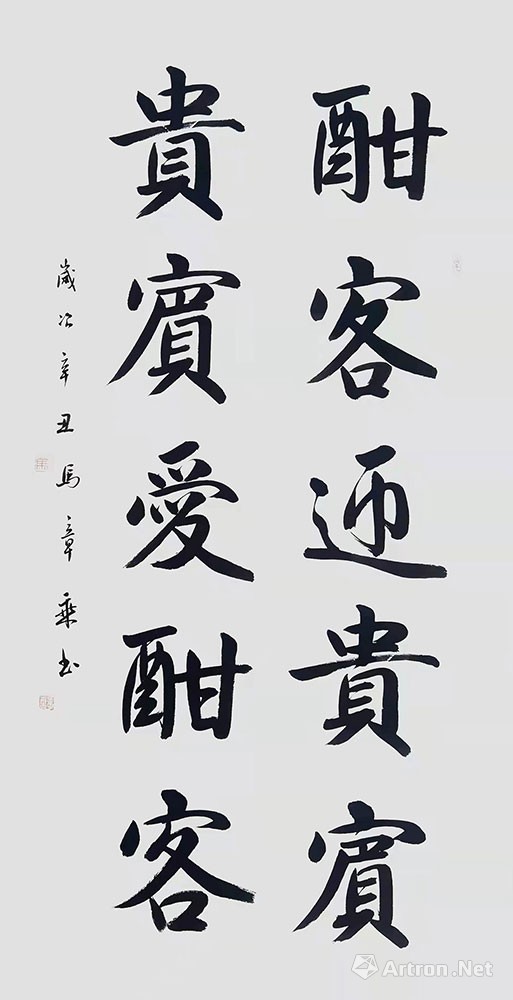 酣客迊貴賓
貴賓愛酣客
歲次辛丑馬章乘书
Artron.Net